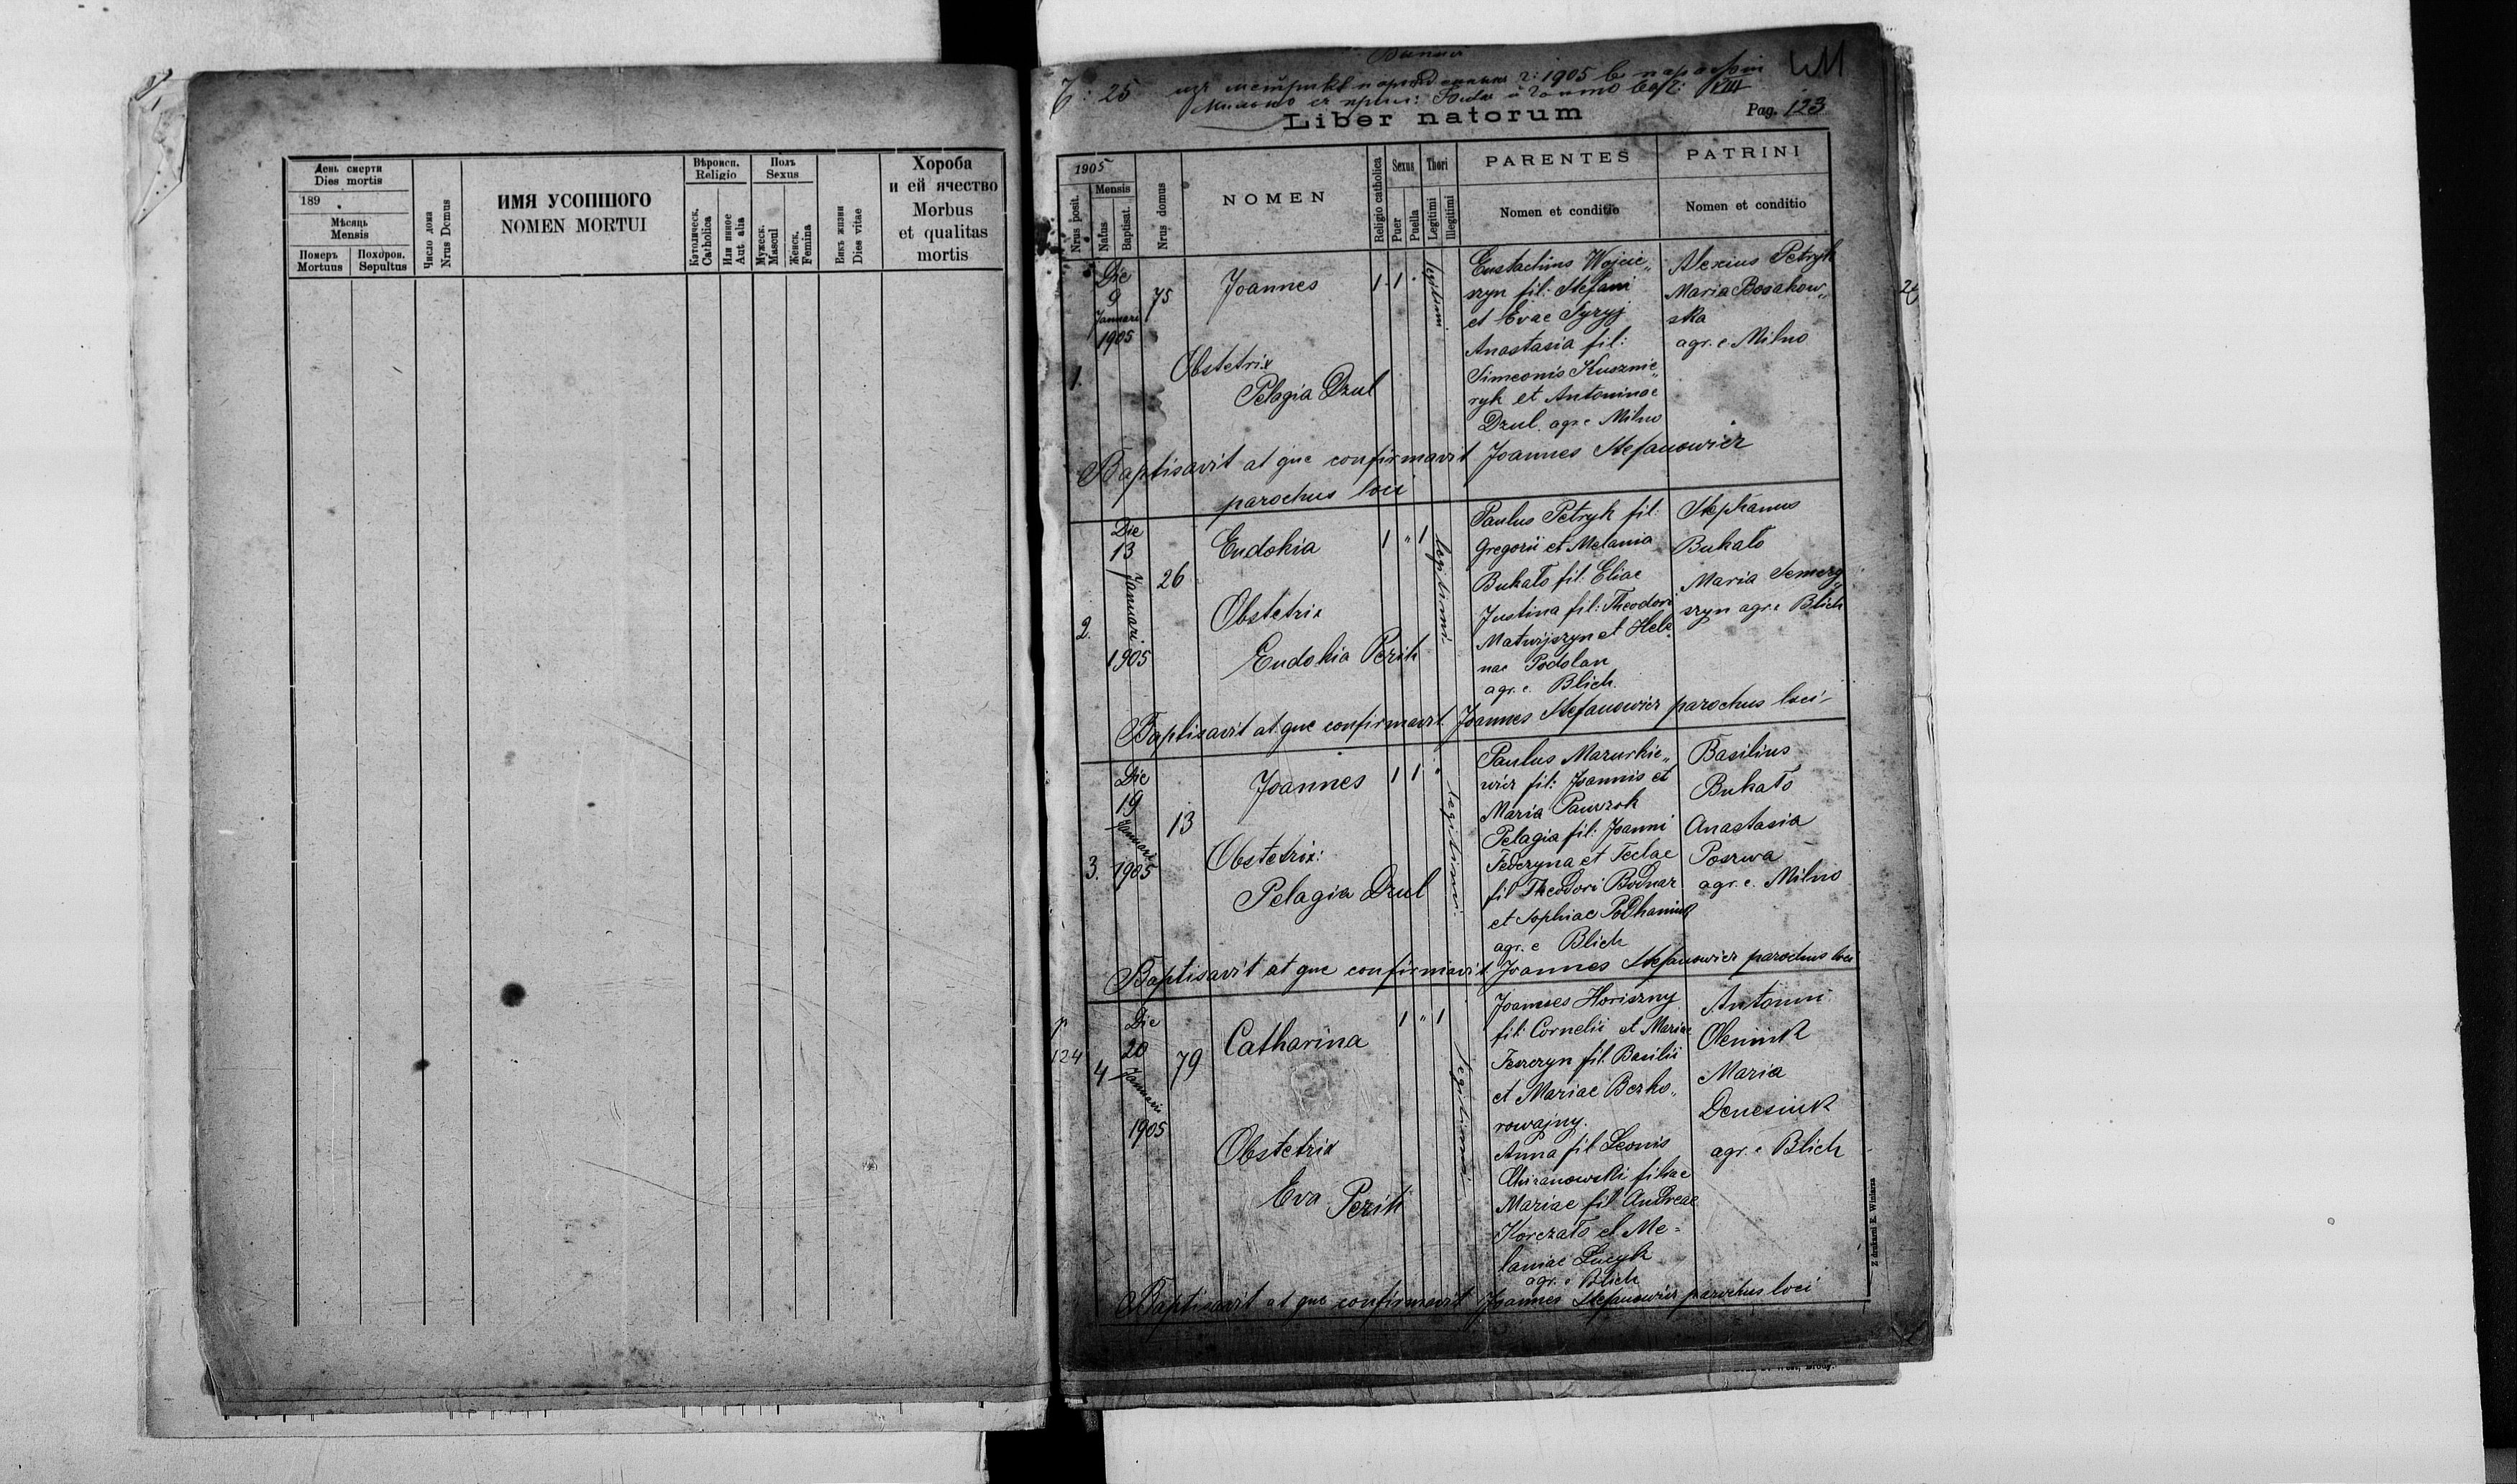 День смерти
Dies mortis
189
Мѣсяць
Mensis
Померъ
Mortuus
Похорон.
Sepultus
Число дома
Nrus Domus
ИМЯ УСОПШОГО
NOMEN MORTUI
Вѣроисп.
Religio
Католическ.
Catholica
Или иное
Aut. alia
Полъ
Sexus
Мужеск.
Mascul
Женск.
Femina
Вѣкъ жизни
Dies vitae
Хороба
и ей ячество
Morbus
et qualitas
mortis
25
1905
Liber natorum
Pag. 123
1905
Mensis
Nrus posit.
Natus
Baptisat.
Nrus domus
NOMEN
Religio catholica
Sexus
Puer
Puella
Thori
Legitimi
Illegitimi
PARENTES
Nomen et conditio
PATRINI
Nomen et conditio
1.
Die
9
Januari
1905
75
Joannes
1 1
legitimi
Obstetrix
Pelagia Dzul
Eustachius Wojcie„
szyn fil: Stefani
et Evae Syryj
Anastasia fil:
Simeonis Kusznie„
ryk et Antoninae
Dzul. agr. e Milno
Alexius Petryk
Maria Bosakow„
ska
agr. e. Milno
Baptisavit at que confirmavit Joannes Stefanowicz
parochus loci
2.
Die
13
Januari
1905
26
Eudokia
1 " 1
legitimi
Obstetrix
Eudokia Perih
Paulus Petryk fil:
Gregorii et Melania
Bukato fil. Eliae
Justina fil: Theodori
Matwijszyn et Hele
nae Podolan
agr. e. Blich
Stephanus
Bukato
Maria Semerg
szyn agr. e Blich
Baptisavit at que confirmavit Joannes Stefanowicz parochus loci
3.
Die
19
Januari
1905
13
Joannes
1 1 "
legitimi
Obstetrix:
Pelagia Dzul
Paulus Mazurkie„
wicz fil: Joannis et
Maria Pawzok
Pelagia fil: Joanni
Federyna et Teclae
fil Theodori Bodnar
et Sophiae Podhaniuk
agr. e Blich
Basilius
Bukato
Anastasia
Poszwa
agr. e. Milno
Baptisavit at que confirmavit Joannes Stefanowicz parochus loci
p
124
4
Die
20
Januarii
1905
79
Catharina
1 " 1
legitimi
Obstetrix
Eva Perih
Joannes Horiszny
fil: Cornelii et Mariae
Teszczyn fil. Basilii
et Mariae Bezko„
rowajny.
Anna fil Leonis
Chrzanowski filiae
Mariae fil Andreae
Korczato et Me=
laniae Lucyk
agr. e Blich
Antonni
Oleniuk
Maria
Denesiuk
agr. e Blich
Baptisavit at que confirmavit Joannes Stefanowicz parochus loci
Z drukarni E. Winiarza